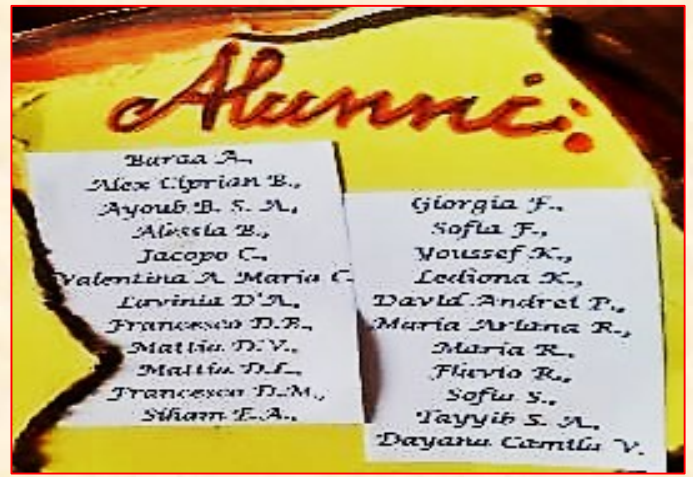 Alunni:
Buraa A.,
Alex Ciprian B.,
Ayoub B. S. A.,
Alessia B.,
Jacopo C.,
Valentina A. Maria C.
Lavinia D'A.,
Francesco D.B.,
Mattia D.V.,
Mattia D.I.,
Francesco D.M.,
Siham E.A.,
Giorgia F.,
Sofia F.,
Youssef K.,
Lediona K.,
David Andrei P.,
Maria Ariana R.,
Maria R.,
Flavio R.,
Sofia S.,
Tayyib S. A.,
Dayana Camila V.